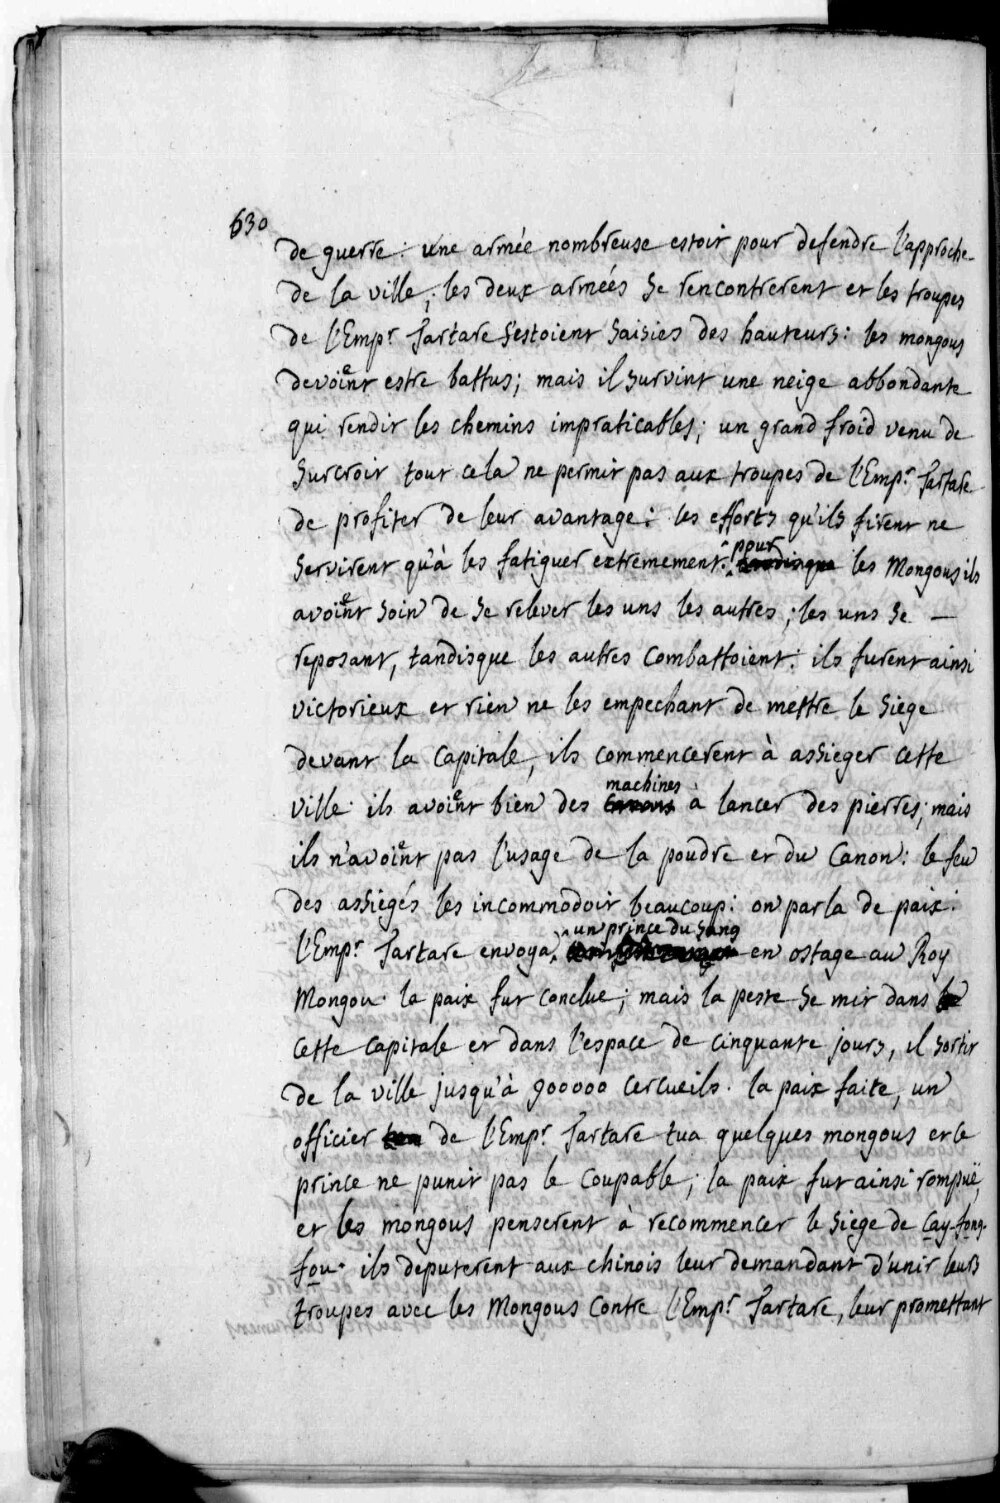 630
de guerre. une armée nombreuse estoit pour defendre l'approche
de la ville; les deux armées se rencontrerent et les troupes
de l'Emp.r Tartare s'estoient saisies des hauteurs: les mongous
devoient estre battus; mais il survint une neige abbondante
qui rendit les chemins impraticables; un grand froid venu de
surcroit tout cela ne permit pas aux troupes de l'Emp.r Tartare
de profiter de leur avantage: les efforts qu'ils firent ne
servirent qu'à les fatiguer extremement. pour tandisque les Mongous ils
avoient soin de se relever les uns les autres; les uns se —
reposant, tandisque les autres combattoient: ils furent ainsi
victorieux et rien ne les empechant de mettre le siege
devant la Capitale, ils commencerent à assieger cette
ville. ils avoient bien des machines à lancer des pierres; mais
ils n'avoient pas l'usage de la poudre et du Canon: le feu
des assiegés les incommodoit beaucoup: on parla de paix:
l'Emp.r Tartare envoya un prince du sang en ostage au Roy
Mongou. la paix fut conclue; mais la peste se mit dans
cette capitale et dans l'espace de cinquante jours, il sortit
de la ville jusqu'à 900000 cercueils. la paix faite, un
officier de l'Emp.r Tartare tua quelques mongous et le
prince ne punit pas le coupable; la paix fut ainsi rompuë,
et les mongous penserent à recommencer le siege de Cay-fong-
fou. ils deputerent aux chinois leur demandant d'unir leurs
troupes avec les Mongous contre l'Emp.r Tartare, leur promettant